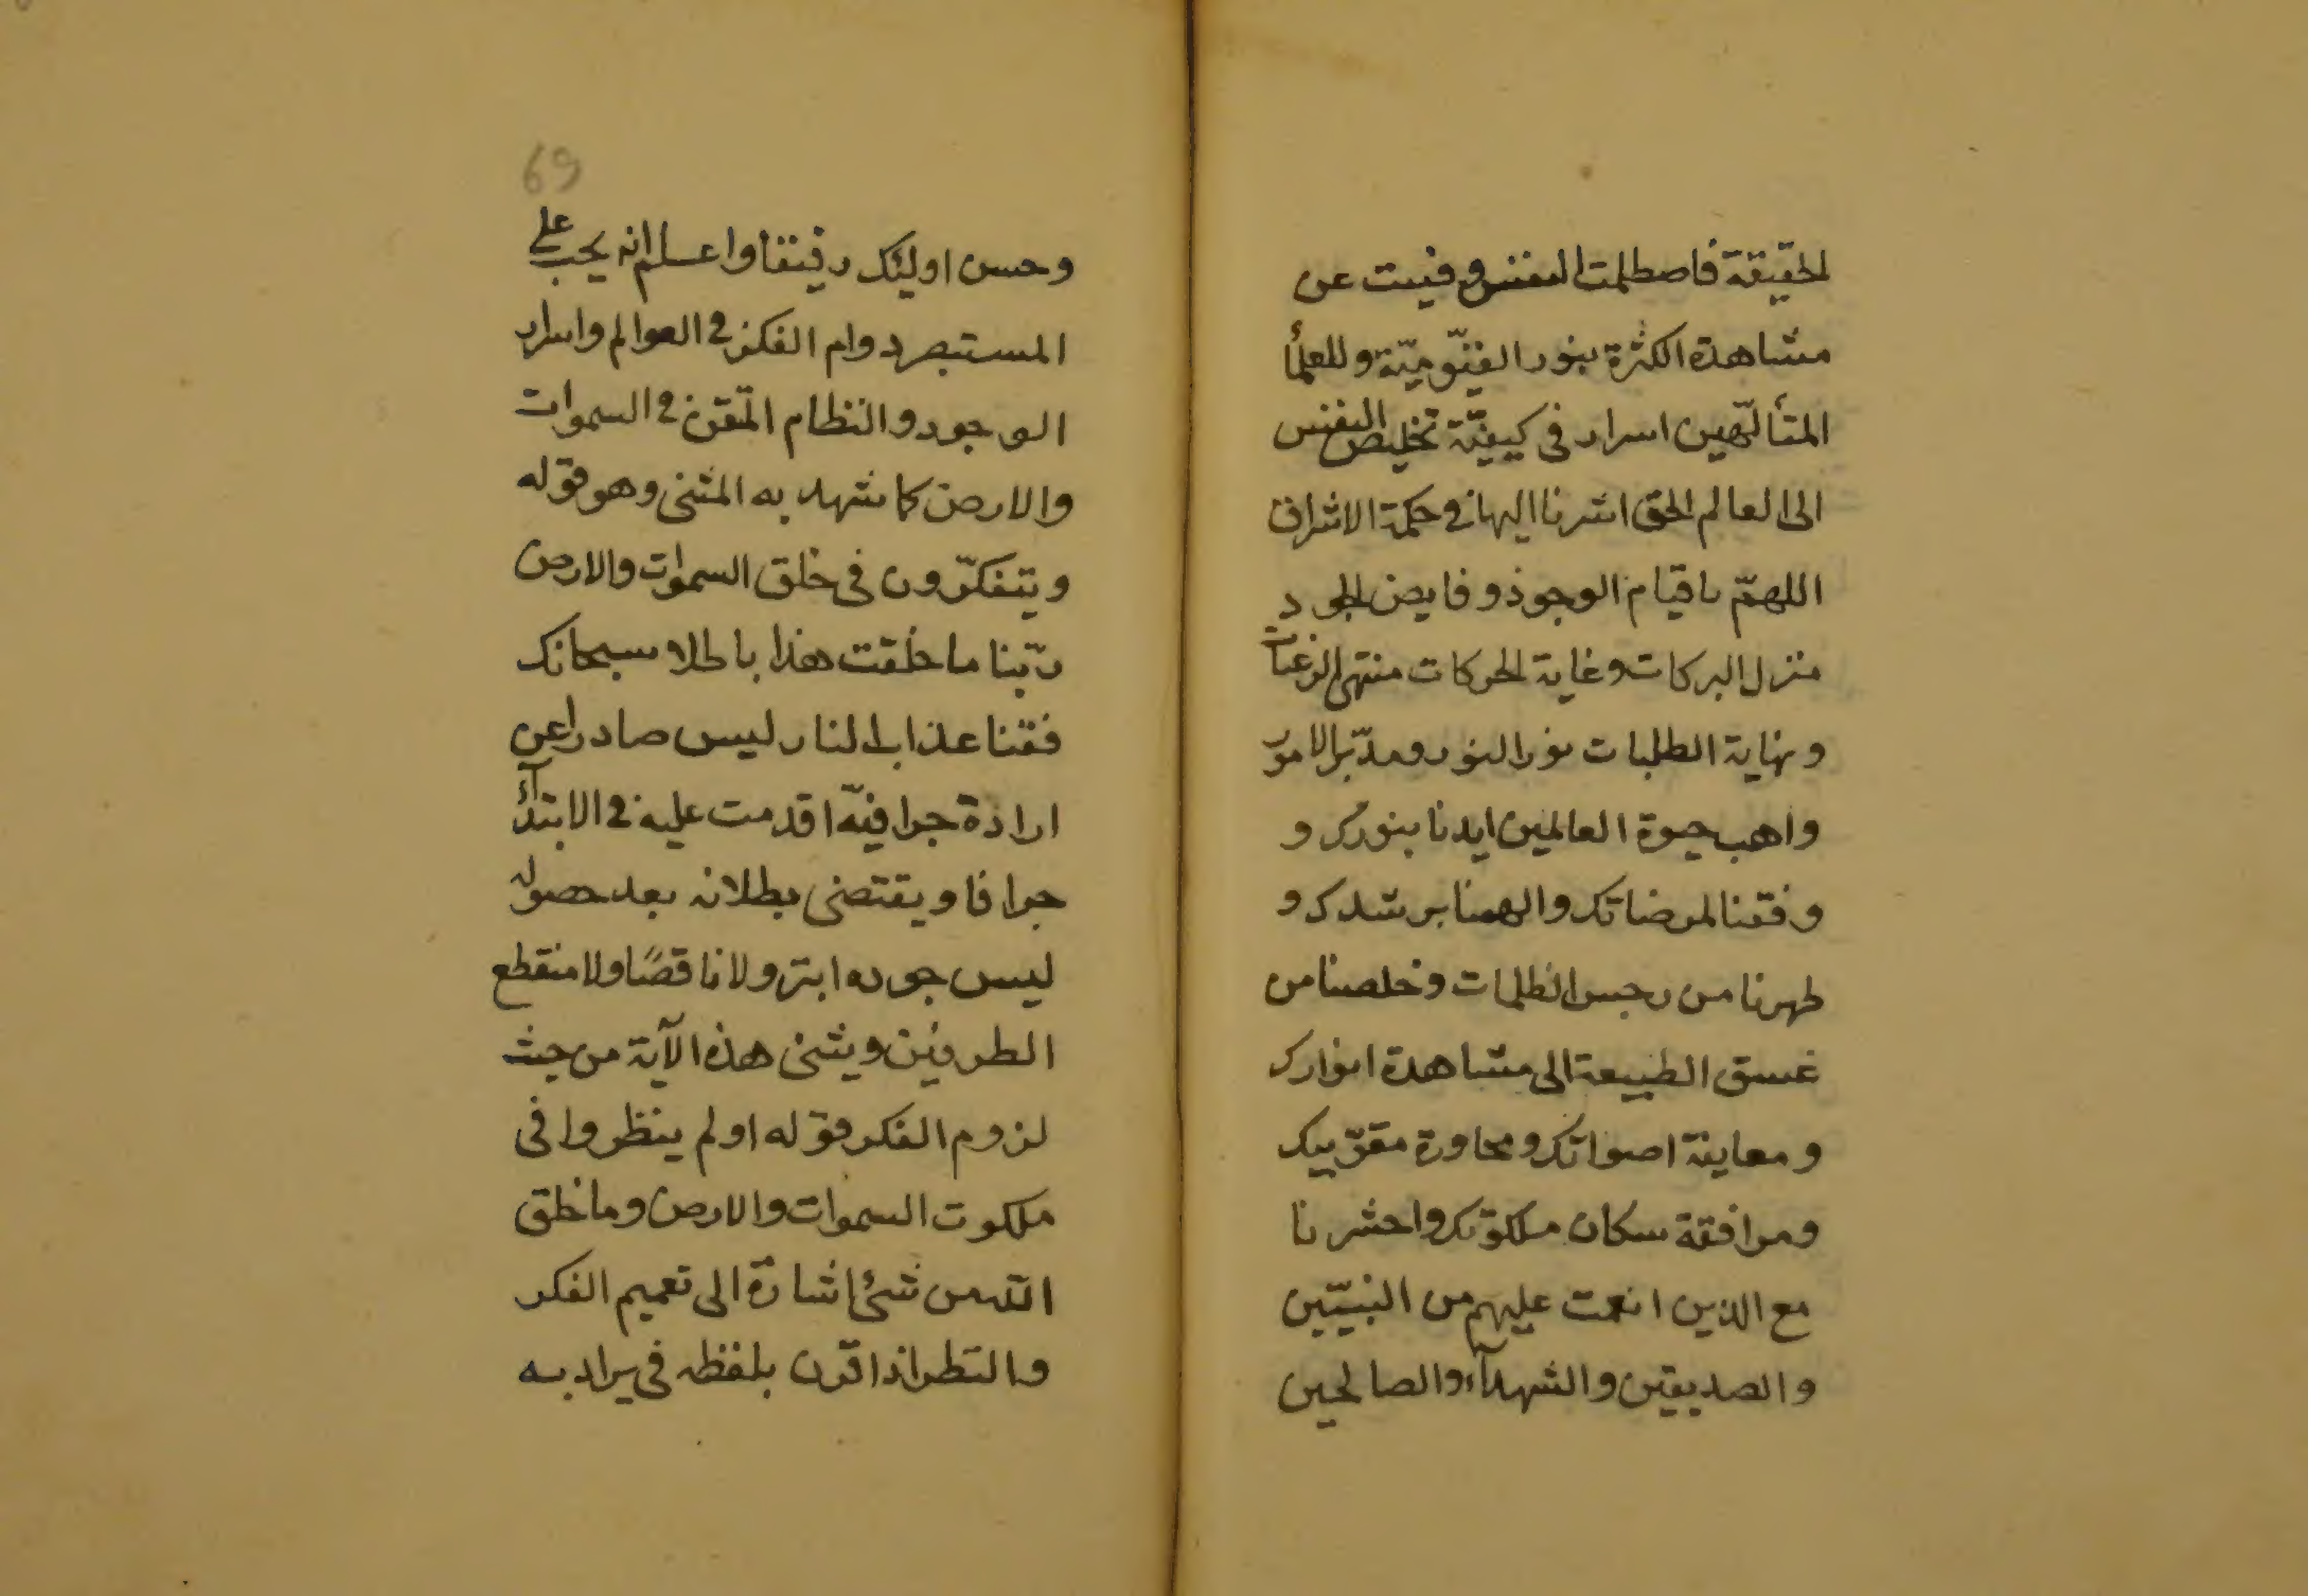 لحقيقة فاصطلمت النفس وفنيت عن
مشاهدة الكثرة بنور القيّوميّة وللعلمأ
المتألّهين اسرار فى كيفيّة تخليص النفس
الى العالم الحق اشرنا اليها فى حكمة الاشراق
اللهمّ يا قيام الوجود و فايض الجود
منزل البركات وغاية الحركات منتهى الرغبات
ونهاية الطلبات نور النور ومدبّر الامور
واهب حيوة العالمين ايدنا بنورك و
وفقنا لمرضاتك والهمنا برشدك و
طهرنا من رجس الظلمات وخلصنا من
غسق الطبيعة الى مشاهدة انوارك
ومعاينة اضوائك ومجاورة مقرّبيك
ومرافقة سكان ملكوتك واحشرنا
مع الذين انعمت عليهم من النبيّين
والصديقين والشهدآء والصالحين
69
وحسن اوليئك رفيقا واعلم انه يجب على
المستبصر دوام الفكر فى العوالم واسرار
الوجود والنظام المتقن فى السموات
والارض كما شهد به المثنى وهو قوله
ويتفكّرون فى خلق السموات والارض
ربّنا ما خلقت هذا باطلا سبحانك
فقنا عذاب النار ليس صادرا عن
ارادة جزافيّة اقدمت عليه فى الابتدآء
جزافا ويقتضى بطلانه بعد حصوله
ليس جوده ابتر ولا ناقصًا ولا منقطع
الطرفين ويثنى هذه الآية من حيث
لزوم الفكر قوله اولم ينظروا فى
ملكوت السموات والارض وما خلق
الله من شئ اشارة الى تعميم الفكر
والنظر اذا قرن بلفظه فى يراد به